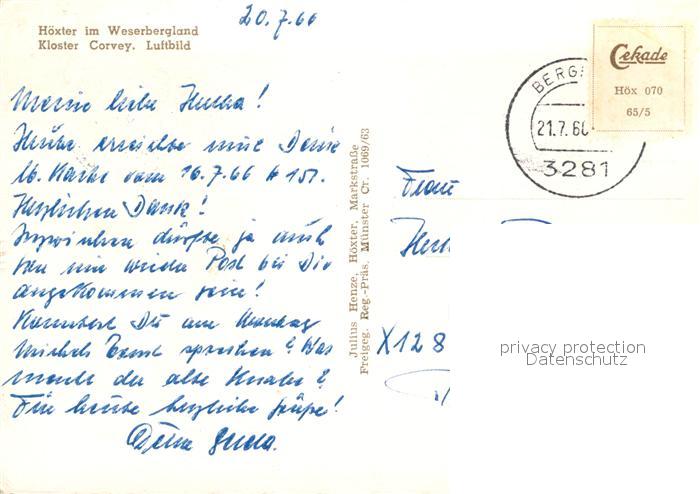 20.7.66
Höxter im Weserbergland
Kloster Corvey. Luftbild
Meine liebe Hertha!
Heute erreichte mich Deine
lb. Karte vom 16.7.66 # 151.
Herzlichen Dank!
Inzwischen dürfte ja auch
von mir wieder Post bei Dir
angekommen sein!
Konntest Du am Montag
Michels Ernst sprechen? Was
macht der alte Knabe?
Für heute herzliche Grüße!
Deine
Julius Henze, Höxter, Markstraße
Freigeg. Reg.-Präs. Münster Cr. 1069/63
Cekade
Höx 070
65/5
BERG
21.7.66
3281
Frau
X128
privacy protection
Datenschutz